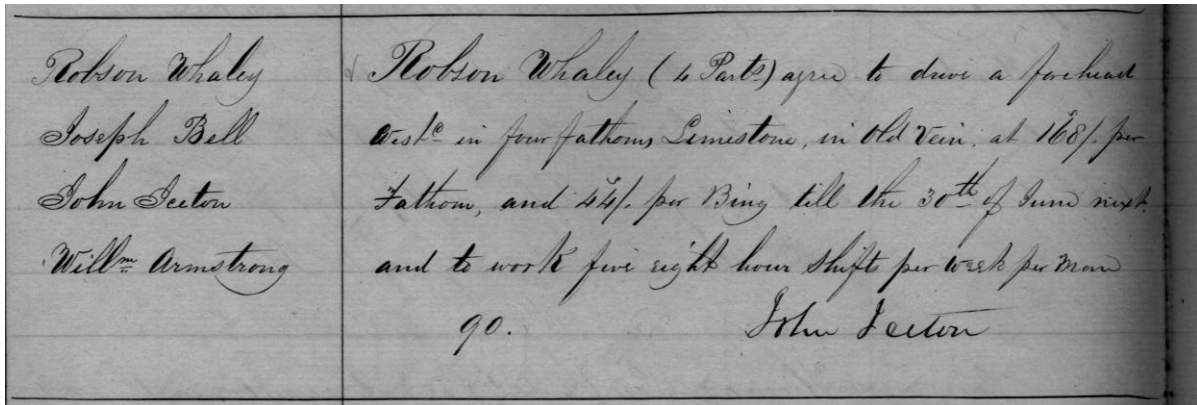 Robson Whaley
Joseph Bell
John Iceton
Willm Armstrong
Robson Whaley (4 Parts) agree to drive a forehead
West in four fathoms Limestone, in Old Vein, at 168/. per
Fathom, and 44/. per Bing till the 30th of June next.
and to work five eight hour shifts per week per Man
90.
John Iceton